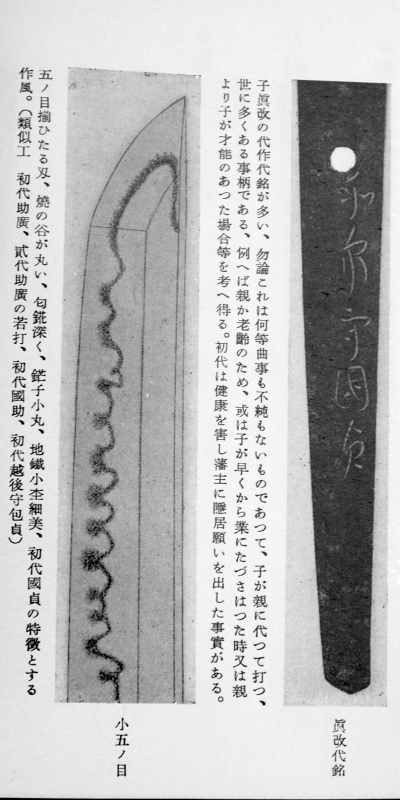 和泉守国貞
眞改代銘
子眞改の代作代銘が多い、勿論これは何等曲事も不純もないものであつて、子が親に代つて打つ、
世に多くある事柄である、例へば親か老齡のため、或は子が早くから業にたづさはつた時又は親
より子が才能のあつた場合等を考へ得る。初代は健康を害し藩主に隱居願いを出した事實がある。
小五ノ目
五ノ目揃ひたる刄、燒の谷が丸い、匂錵深く、鋩子小丸、地鐵小杢細美、初代國貞の特徴とする
作風。(類似工 初代助廣、貳代助廣の若打、初代國助、初代越後守包貞)